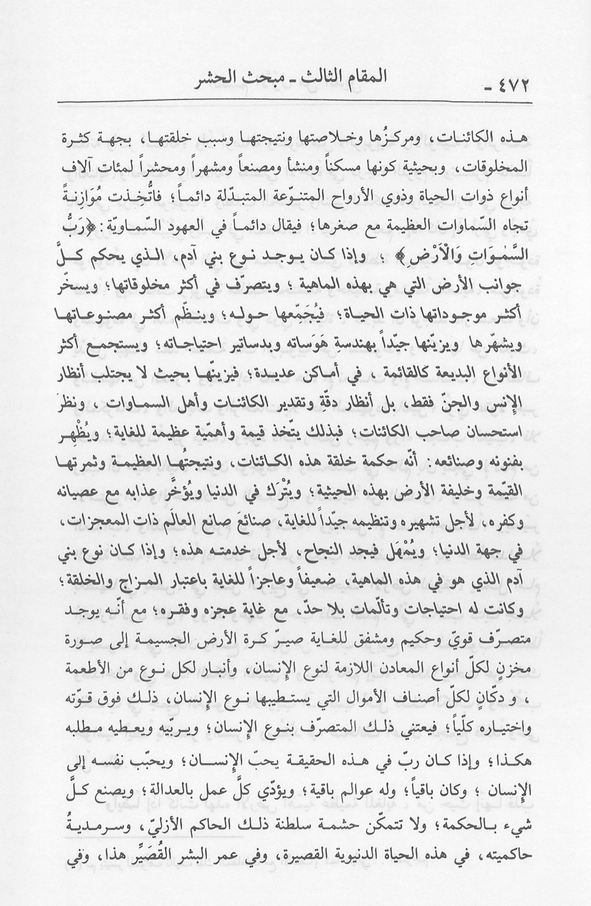 ٤٧٢ - المقام الثالث - مبحث الحشر
هذه الكائنات، ومركزُها وخلاصتها ونتيجتها وسبب خلقتها، بجهة كثرة
المخلوقات، وبحيثية كونها مسكناً ومنشأ ومصنعاً ومشهراً ومحشراً لمئات آلاف
أنواع ذوات الحياة وذوي الأرواح المتنوّعة المتبدّلة دائماً؛ فاتُّخذت مُوَازِنةً
تجاه السّماوات العظيمة مع صغرها؛ فيقال دائماً في العهود السّماويّة: ﴿رَبُّ
السَّمٰوَاتِ وَالْاَرْضِ﴾ ؛ وإذا كان يوجد نوع بني آدم، الذي يحكم كلَّ
جوانب الأرض التي هي بهذه الماهية ؛ ويتصرّف في أكثر مخلوقاتها؛ ويسخّر
أكثر موجوداتها ذات الحياة؛ فيُجَمِّعها حوله؛ وينظّم أكثر مصنوعاتها
ويشهّرها ويزيّنها جيّداً بهندسةِ هَوَساته وبدساتير احتياجاته؛ ويستجمع أكثر
الأنواع البديعة كالقائمة ، في أماكن عديدة؛ فيزيّنها بحيث لا يجتلب أنظار
الإنس والجنّ فقط، بل أنظار دقّةِ وتقدير الكائنات وأهل السماوات ، ونظرَ
استحسان صاحب الكائنات؛ فبذلك يتّخذ قيمة وأهمّية عظيمة للغاية؛ ويُظْهِر
بفنونه وصنائعه: أنّه حكمة خلقة هذه الكائنات، ونتيجتُها العظيمة وثمرتها
القيّمة وخليفة الأرض بهذه الحيثية؛ ويُتْرَك في الدنيا ويُؤخَّر عذابه مع عصيانه
وكفره، لأجل تشهيره وتنظيمه جيّداً للغاية، صنائعَ صانع العالَم ذات المعجزات،
في جهة الدنيا؛ ويُمْهَل فيجد النجاح، لأجل خدمته هذه؛ وإذا كان نوع بني
آدم الذي هو في هذه الماهية، ضعيفاً وعاجزاً للغاية باعتبار المزاج والخلقة؛
وكانت له احتياجات وتألّمات بلا حدّ، مع غاية عجزه وفقره؛ مع أنّه يوجد
متصرّف قويّ وحكيم ومشفق للغاية صيّر كرة الأرض الجسيمة إلى صورة
مخزنٍ لكلّ أنواع المعادن اللازمة لنوع الإنسان، وأنبار لكل نوع من الأطعمة
، و دكّانٍ لكلّ أصناف الأموال التي يستطيبها نوع الإنسان، ذلك فوق قوّته
واختياره كلّياً؛ فيعتني ذلك المتصرّف بنوع الإنسان؛ ويربّيه ويعطيه مطلبه
هكذا؛ وإذا كان ربّ في هذه الحقيقة يحبّ الإنسان؛ ويحبّب نفسه إلى
الإنسان ؛ وكان باقياً؛ وله عوالم باقية؛ ويؤدّي كلَّ عمل بالعدالة؛ ويصنع كلَّ
شيء بالحكمة؛ ولا تتمكّن حشمة سلطنة ذلك الحاكم الأزليّ، وسرمديةُ
حاكميته، في هذه الحياة الدنيوية القصيرة، وفي عمر البشر القُصَيِّر هذا، وفي